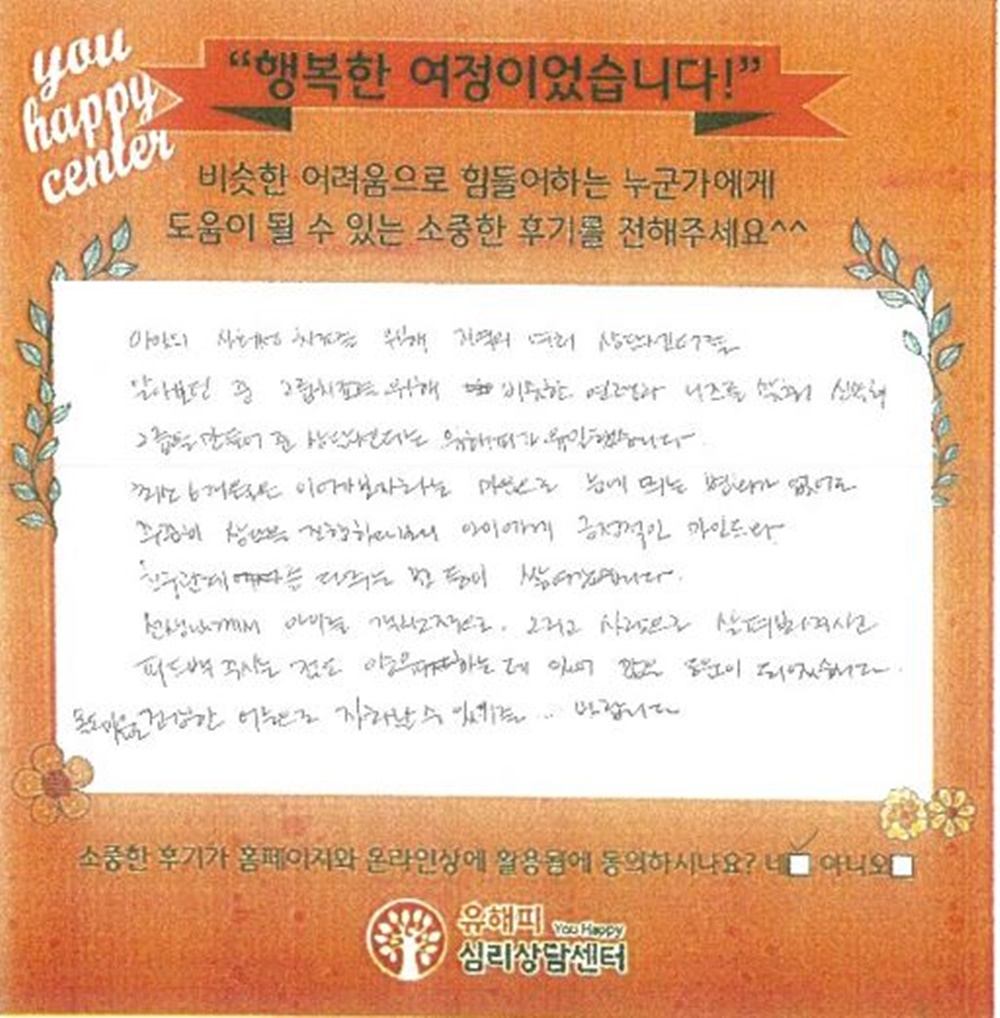 you
happy
center
“행복한 여정이었습니다!”
비슷한 어려움으로 힘들어하는 누군가에게
도움이 될 수 있는 소중한 후기를 전해주세요^^
아이의 사회성 치료를 위해 지역의 여러 상담센터를
알아보던 중 그룹치료를 위해 비슷한 연령과 니즈를 신속히
그룹을 만들어 준 상담센터는 유해피가 유일했습니다.
최소 6개월은 이어가보자라는 마음으로 눈에 띄는 변화가 없어도
꾸준히 상담을 진행하다보니 아이에게 긍정적인 마인드와
친구관계 다루는 법 등이
선생님께서 아이를 객관적으로, 그리고 사랑으로 살펴봐주시고
피드백 주시는 것도 하는데 있어 많은 도움이 되었습니다.
몸도 마음도 건강한 어른으로 자라날 수 있기를.. 바랍니다
소중한 후기가 홈페이지와 온라인상에 활용됨에 동의하시나요? 네 아니오
유해피 You Happy
심리상담센터